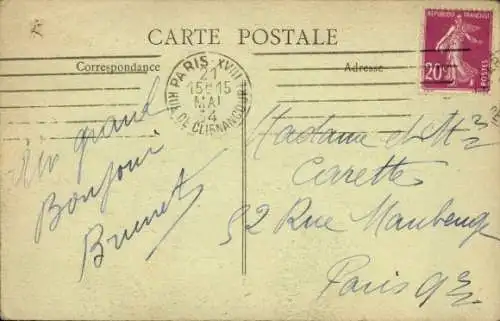 CARTE POSTALE
Correspondance
Adresse
REPUBLIQUE FRANÇAISE
20c
POSTES
PARIS XVIII
21
15H15
MAI
34
R. DE CLIGNANCOURT
Un grand
Bonjour
Brunet
Madame et Mr
Carette
52 Rue Maubeuge
Paris 9e